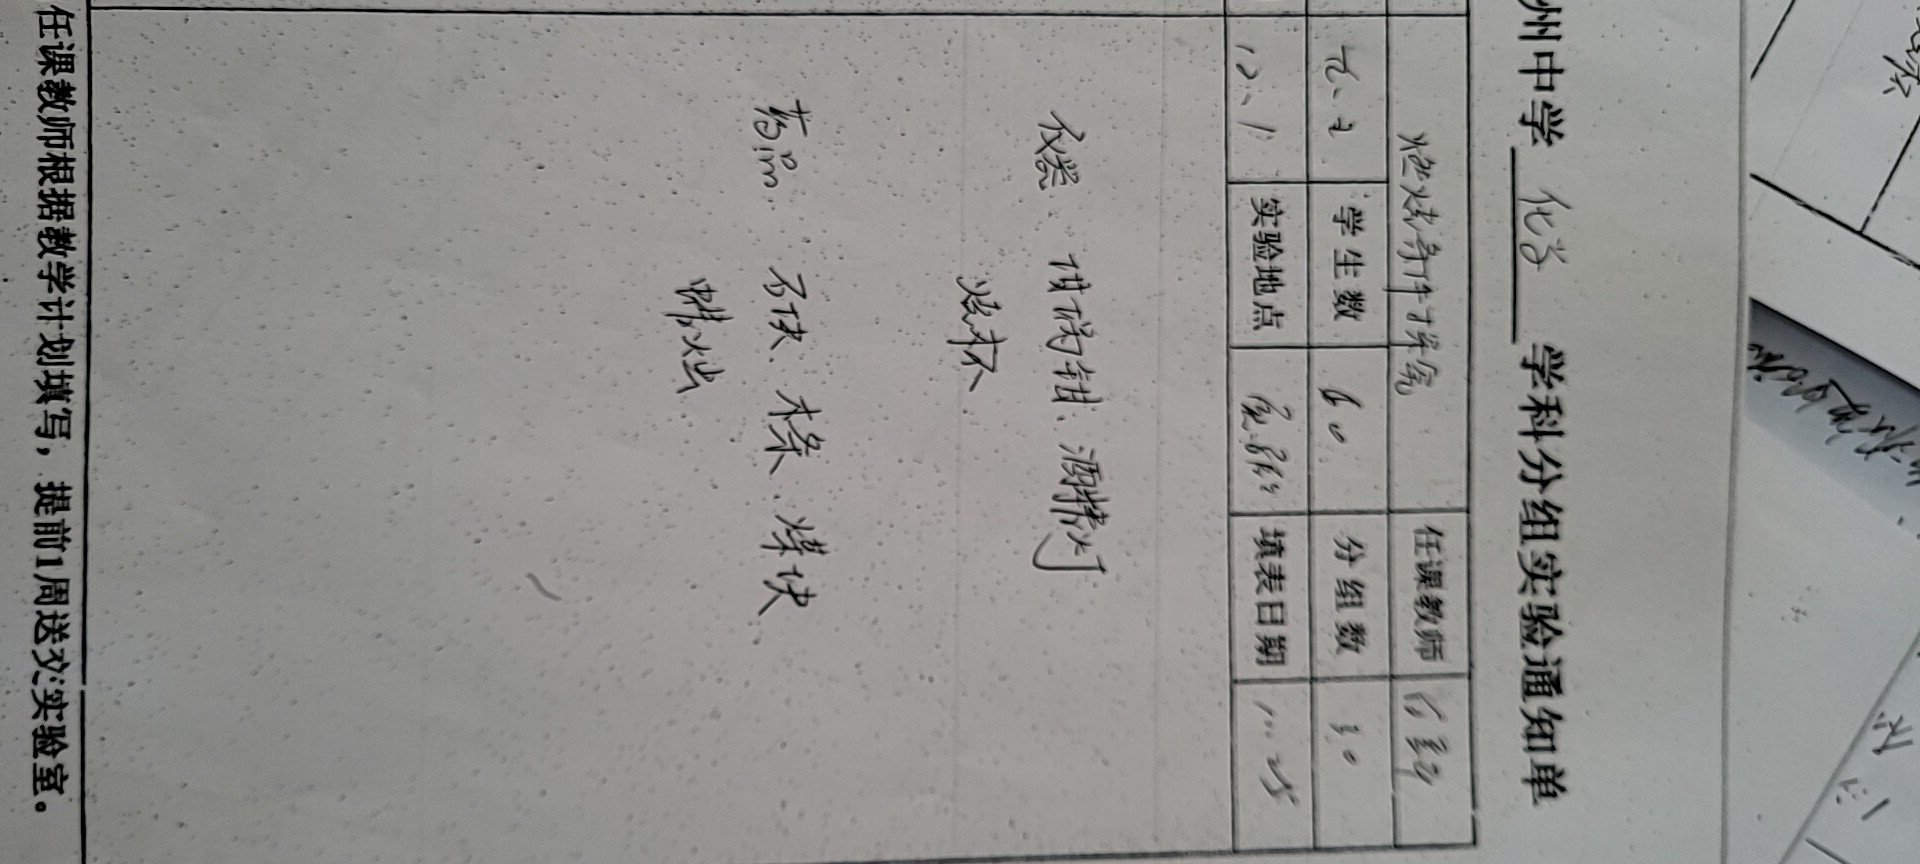 州中学 化学 学科分组实验通知单
燃烧条件探究 任课教师
七、2 学生数 60 分组数 30
12、1 实验地点 填表日期 11.25
仪器、坩埚钳、酒精灯
烧杯
药品、石块、木条、煤块
蜡烛
任课教师根据教学计划填写，提前1周送交实验室。